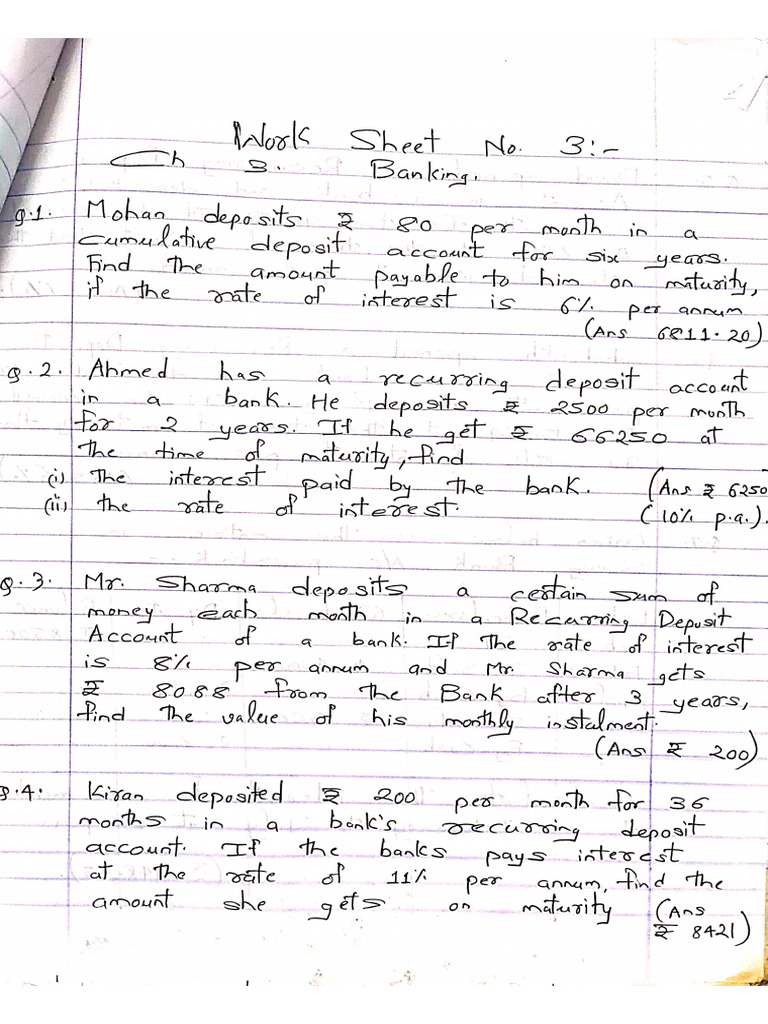 Work Sheet No. 3:-
Ch 3. Banking.
Q.1. Mohan deposits ₹ 80 per month in a
cumulative deposit account for six years.
Find the amount payable to him on maturity,
if the rate of interest is 6% per annum
(Ans 6811.20)
Q.2. Ahmed has a recurring deposit account
in a bank. He deposits ₹ 2500 per month
for 2 years. If he get ₹ 66250 at
the time of maturity, find
(i) the interest paid by the bank. (Ans ₹ 6250
(ii) the rate of interest. (10% p.a.).
Q.3. Mr. Sharma deposits a certain sum of
money each month in a Recurring Deposit
Account of a bank. If the rate of interest
is 8% per annum and Mr. Sharma gets
₹ 8088 from the Bank after 3 years,
find the value of his monthly instalment.
(Ans ₹ 200)
Q.4. Kiran deposited ₹ 200 per month for 36
months in a bank's recurring deposit
account. If the banks pays interest
at the rate of 11% per annum, find the
amount she gets on maturity (Ans
₹ 8421)